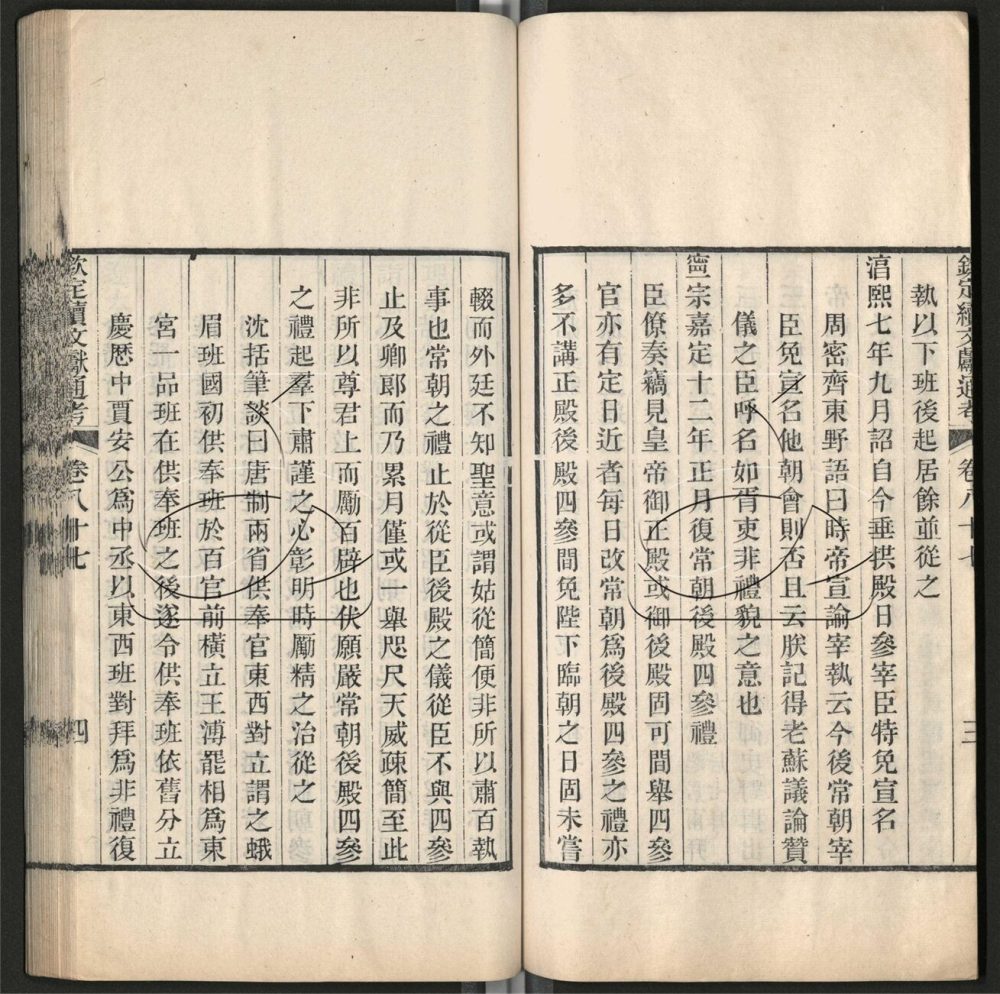 欽定續文獻通考 卷八十七 三
執以下班後起居餘並從之
淳熙七年九月詔自今垂拱殿日參宰臣特免宣名
周密齊東野語曰時帝宣諭宰執云今後常朝宰
臣免宣名他朝會則否且云朕記得老蘇議論贊
儀之臣呼名如胥吏非禮貌之意也
寧宗嘉定十二年正月復常朝後殿四參禮
臣僚奏竊見皇帝御正殿或御後殿固可間舉四參
官亦有定日近者每日改常朝爲後殿四參之禮亦
多不講正殿後殿四參間免陛下臨朝之日固未嘗
輟而外廷不知聖意或謂姑從簡便非所以肅百執
事也常朝之禮止於從臣後殿之儀從臣不與四參
止及卿郎而乃累月僅或一舉咫尺天威疎簡至此
非所以尊君上而勵百辟也伏願嚴常朝後殿四參
之禮起羣下肅謹之心彰明時勵精之治從之
沈括筆談曰唐制兩省供奉官東西對立謂之蛾
眉班國初供奉班於百官前橫立王溥罷相爲東
宮一品班在供奉班之後遂令供奉班依舊分立
慶歷中賈安公爲中丞以東西班對拜爲非禮復
欽定續文獻通考 卷八十七 四